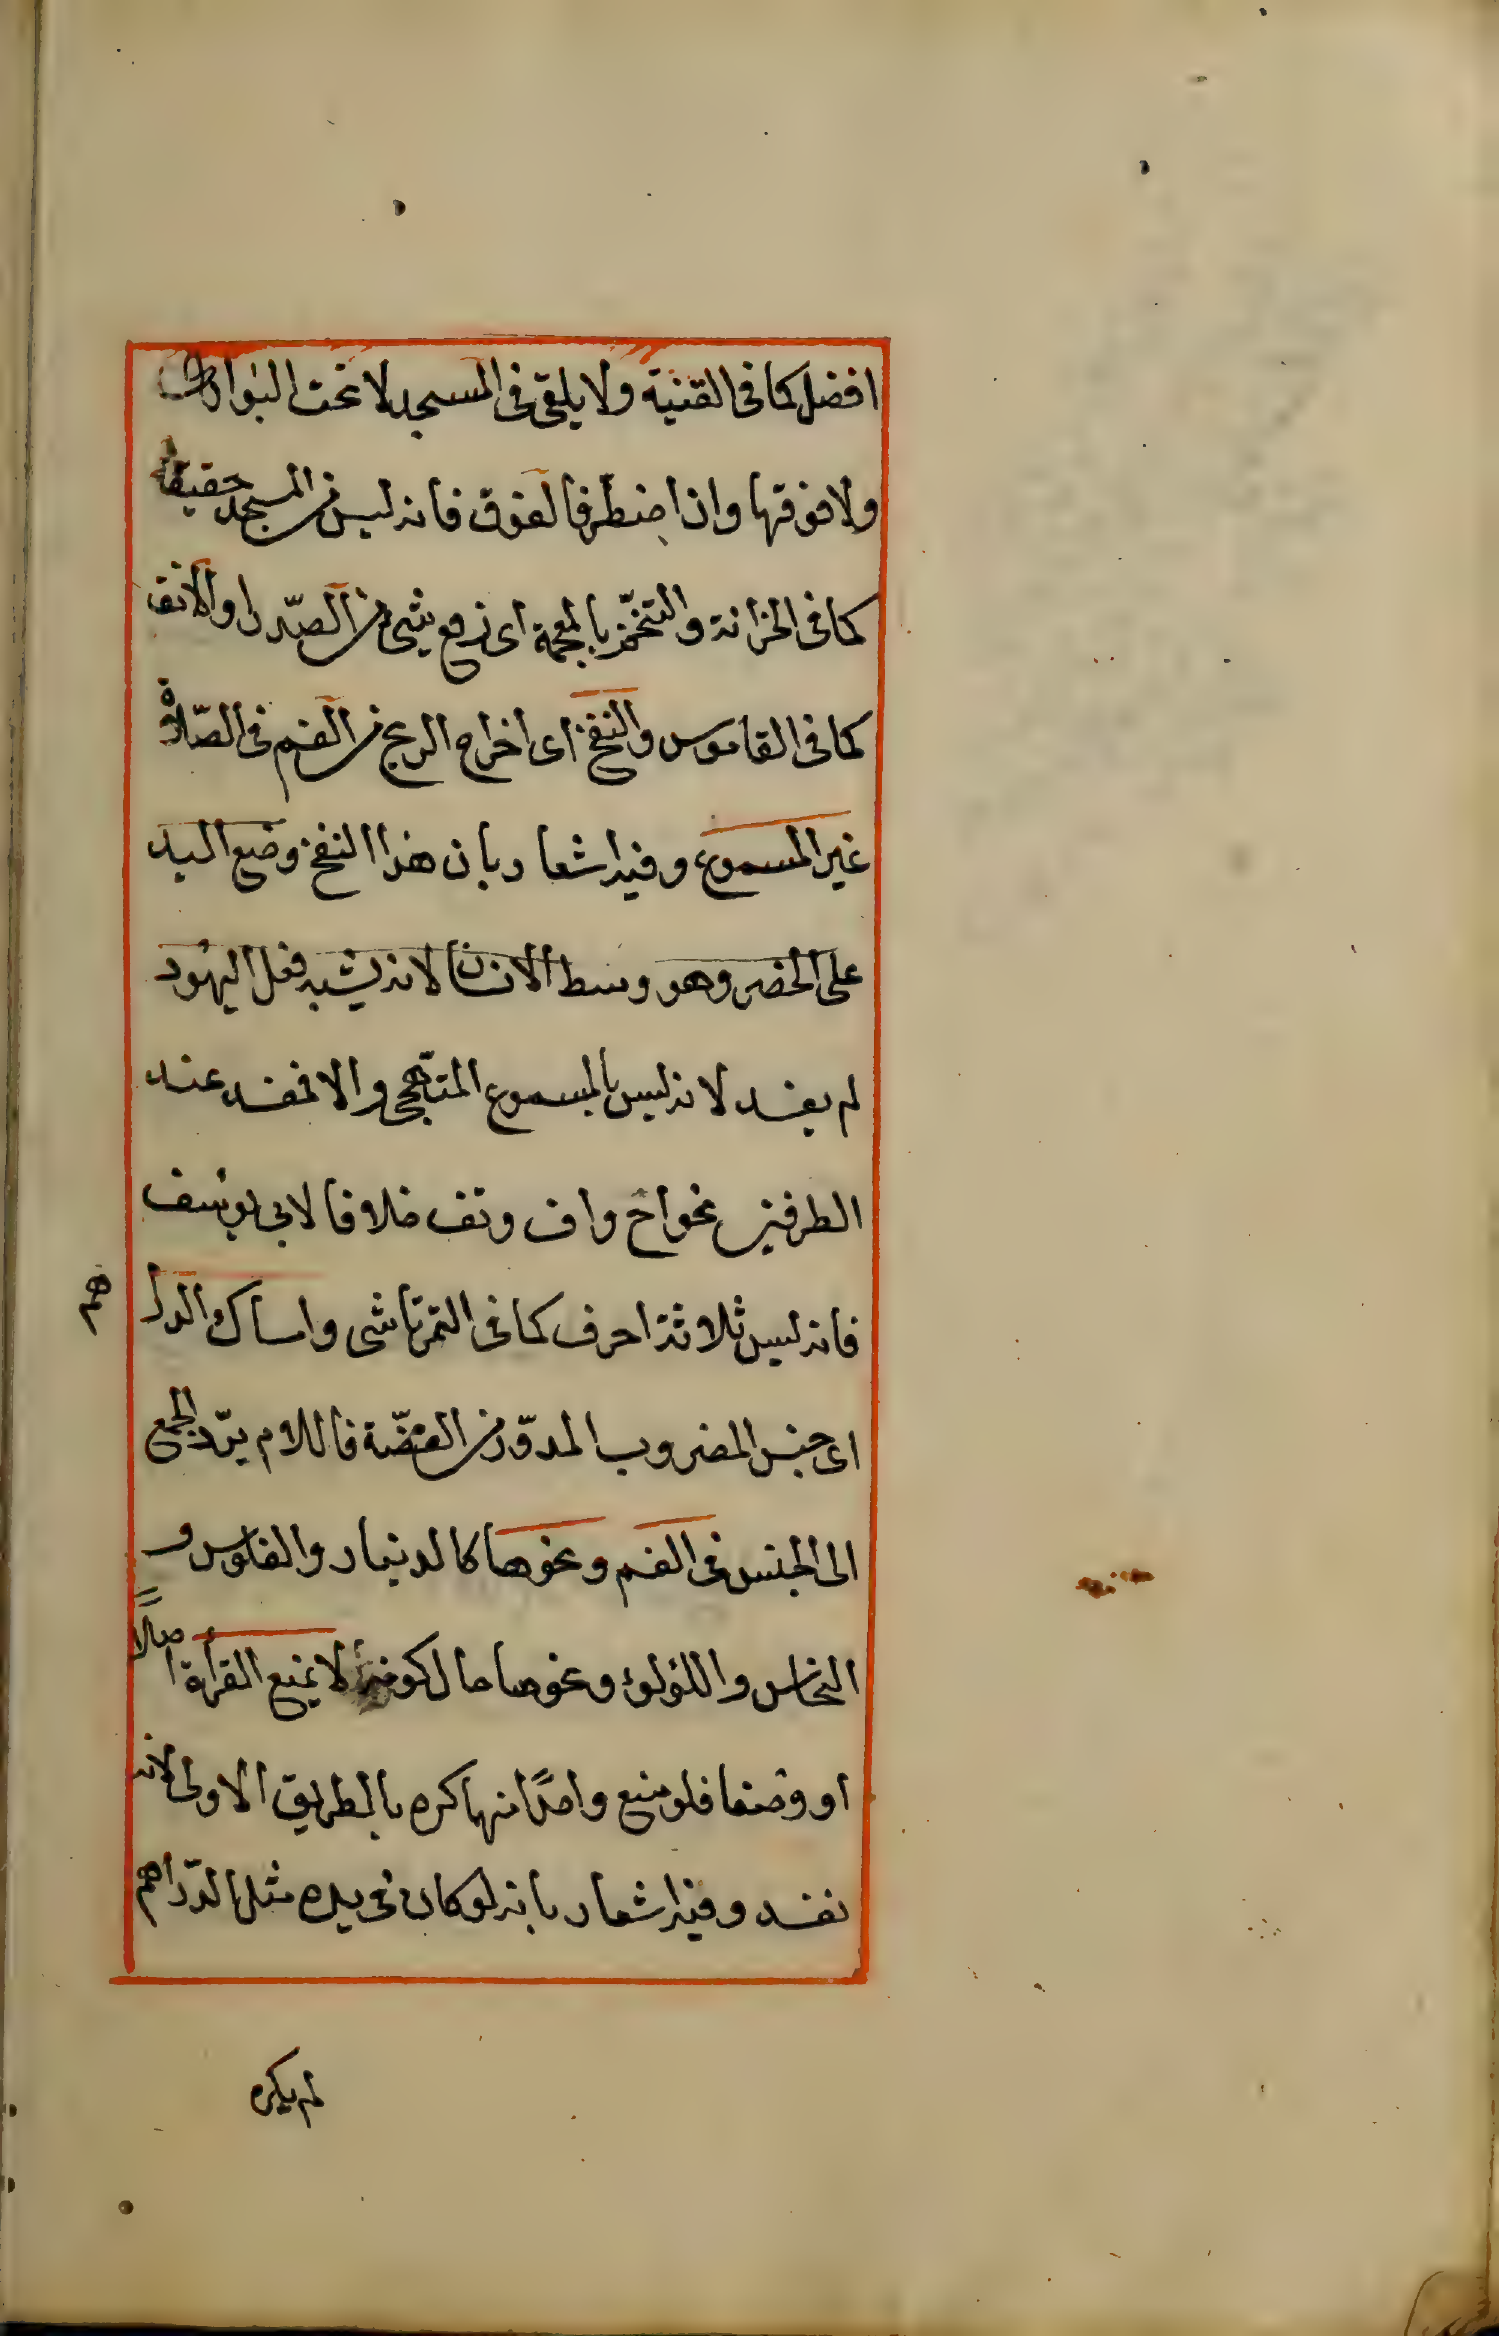 افضل كما فى القنية ولا يلقى فى المسجد لا تحت البوارى
ولا فوقها وان اضطر فالفوق فانه ليس من المسجد حقيقة
كما فى الخزانة والتنخم بالمعجمة اى نزع شئ من الصّدر او الانف
كما فى القاموس والنفخ اى اخراج الريح من الفم فى الصّلاة
غير المسموع وفيه اشعار بان هذا النفخ وضع اليد
على الخصر وهو وسط الانسان لانه يشبه فعل اليهود
لم يفسد لانه ليس بالمسموع المتهجّى والا فمفسد عند
الطرفين نحو اخ واف وتف خلافا لابى يوسف
فانه ليس ثلاثة احرف كما فى التمرتاشى وامساك الدرا
هم
اى جنس المضروب المدوّر من الفضّة فاللام يردّ الجمع
الى الجنس فى الفم ونحوها كالدينار والفلوس و
النحاس واللؤلؤ ونحوها حال كونه لا يمنع القرأة اصلا
او وصفا فلو منع واحدًا منها كره بالطريق الاولى لانه
تفسد وفيه اشعار بانه لو كان فى يده مثل الدّراهم
لم يكره